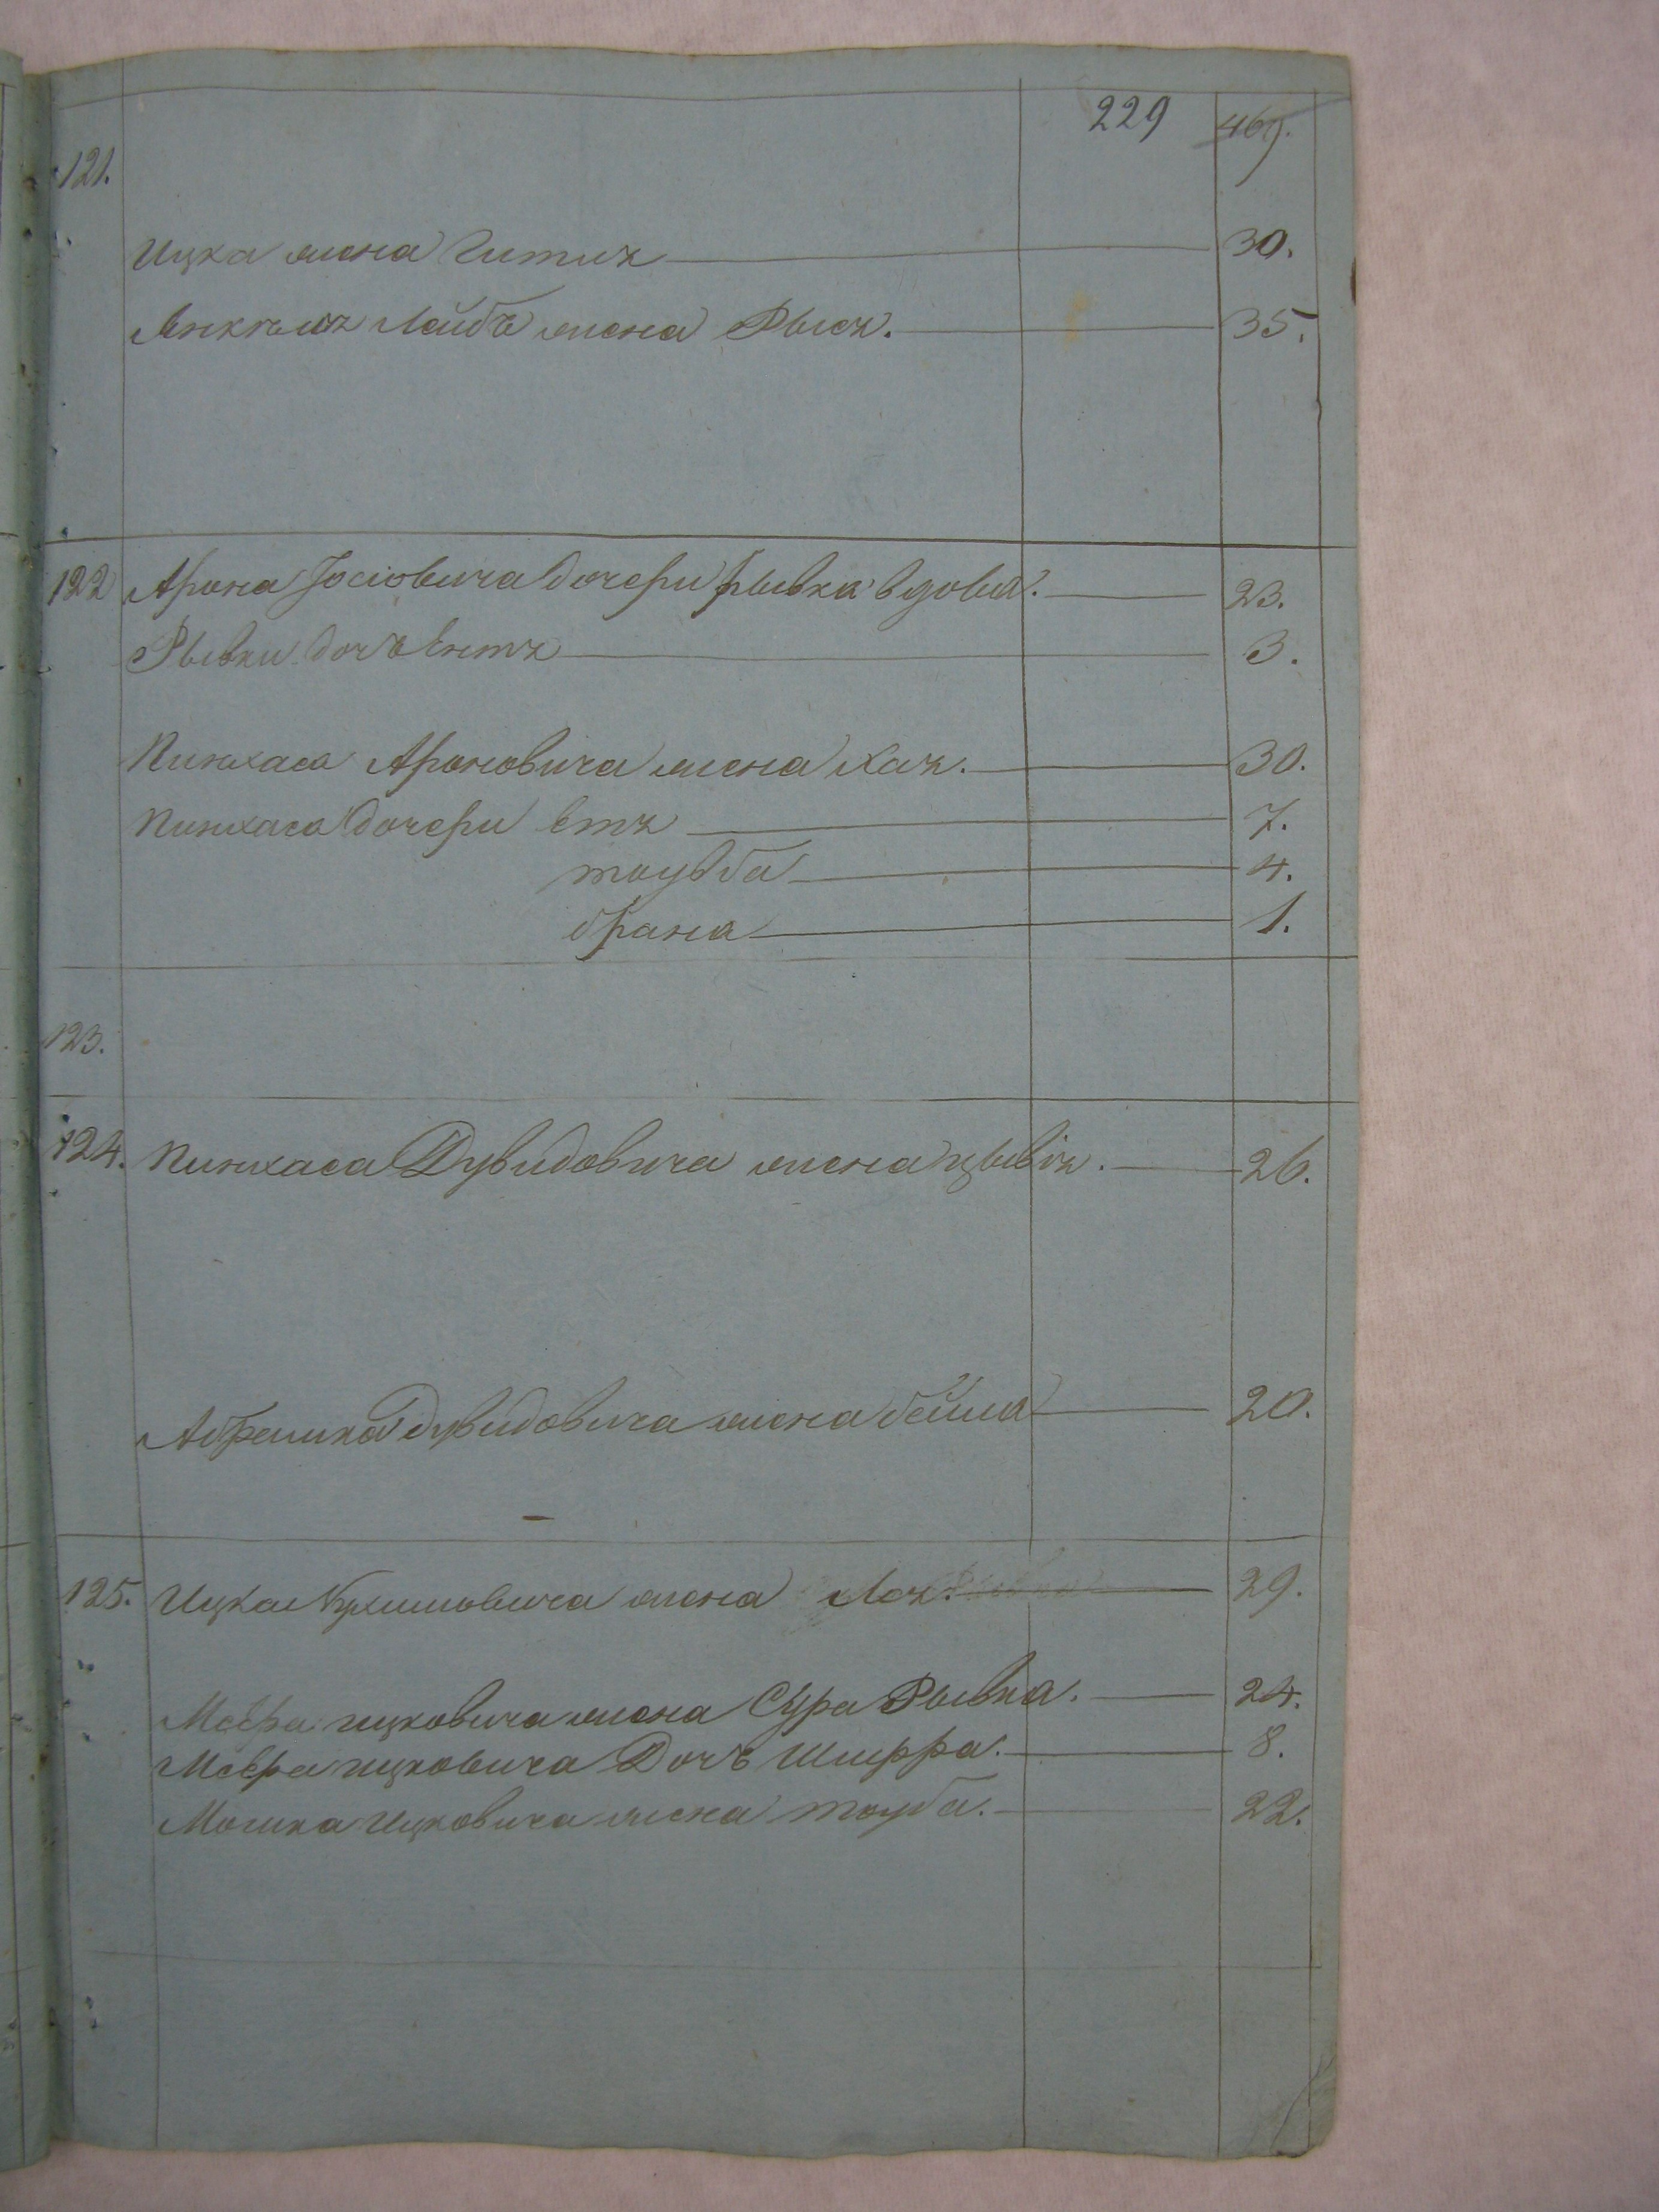 229 469.
121.
Ицка жена Гитля 30.
Янкеля Лейбъ жена Рыся. 35.
122 Арона Іосіовича дочери рывка вдова. 23.
Рывки дочь Ентя 3.
Пинхаса Ароновича жена Хая. 30.
Пинхаса дочери Етя 7.
тоувба 4.
брана 1.
123.
124. Пинхаса Дувидовича жена цывія. 26.
Абрашка дувидовича жена бейла 20.
125. Ицка жена Лея. 29.
Меера ицковича жена Сура Рывка. 24.
Меера ицковича Дочь Шифра. 8.
Мошка Ицковича жена тоуба. 22.